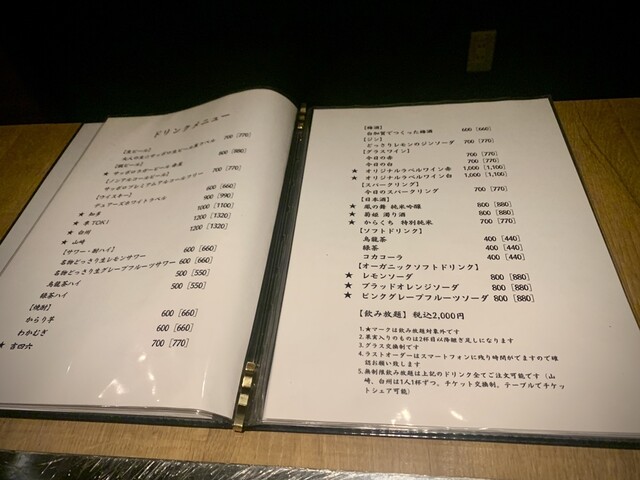 ドリンクメニュー
【生ビール】
大人の生☆サッポロ生ビール黒ラベル 700 [770]
【瓶ビール】
★ サッポロラガービール 赤星 800 [880]
【ノンアルコールビール】
サッポロプレミアムアルコールフリー 700 [770]
【ウイスキー】
デュワーズホワイトラベル 600 [660]
★ 知多 900 [990]
★ 季TOKI 1000 [1100]
★ 白州 1200 [1320]
★ 山崎 1200 [1320]
【サワー・酎ハイ】
名物どっさり生レモンサワー 600 [660]
名物どっさり生グレープフルーツサワー 600 [660]
烏龍茶ハイ 500 [550]
緑茶ハイ 500 [550]
【焼酎】
からり芋 600 [660]
わかむぎ 600 [660]
★ 吉四六 700 [770]
【梅酒】
自加賀でつくった梅酒 600 [660]
【ジン】
どっさりレモンのジンソーダ 700 [770]
【グラスワイン】
今日の赤 700 [770]
今日の白 700 [770]
★ オリジナルラベルワイン赤 1,000 [1,100]
★ オリジナルラベルワイン白 1,000 [1,100]
【スパークリング】
今日のスパークリング 700 [770]
【日本酒】
★ 鳳の舞 純米吟醸 800 [880]
★ 菊姫 濁り酒 800 [880]
★ からくち 特別純米 700 [770]
【ソフトドリンク】
烏龍茶 400 [440]
緑茶 400 [440]
コカコーラ 400 [440]
【オーガニックソフトドリンク】
★ レモンソーダ 800 [880]
★ ブラッドオレンジソーダ 800 [880]
★ ピンクグレープフルーツソーダ 800 [880]
【飲み放題】 税込2,000円
1.★マークは飲み放題対象外です
2.果実入りのものは2杯目以降継ぎ足しになります
3.グラス交換制です
4.ラストオーダーはスマートフォンに残り時間がでますので確
認お願い致します
5.無制限飲み放題は上記のドリンク全てご注文可能です（山
崎、白州は1人1杯ずつ、チケット交換制、テーブルでチケッ
トシェア可能）